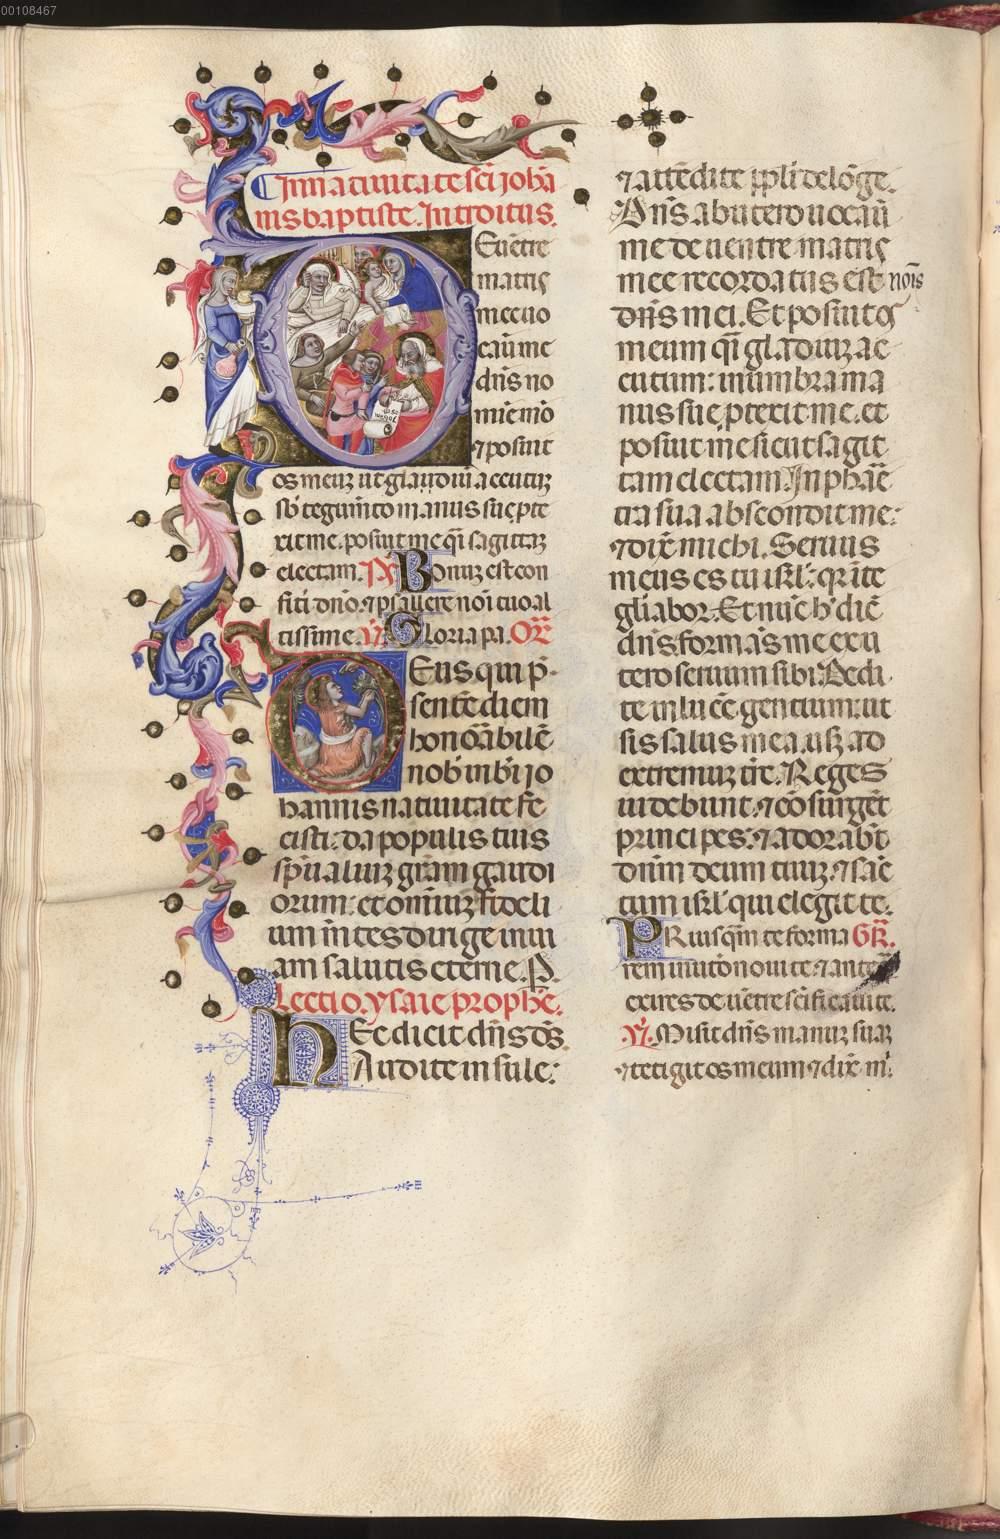 00108467
In natiuitate sc̄i johā
nis baptiste. Introitus.
De uentre
matris
mee uo
cauit me
dn̄s no
mīe meo
⁊ posuit
os meuȝ ut gladiuȝ acutuȝ
sb̄ tegumēto manus sue p̱te
xit me. posuit me q̄i sagittaȝ
electam. p̄s Bonuȝ est con
fiteri dn̄o. ⁊ psallere noīi tuo al
tissime. v̄. Gloria pa. Or̄.
Deus qui p̄
sentē diem
honorabilē
nob̄ in bt̄i jo
hannis natiuitate fe
cisti: da populis tuis
sp̄ualiuȝ gr̄am gaudi
orum: et om̄iuȝ fideli
um mētes dirige in ui
am salutis eterne. P̱.
Lectio ysaie prophē.
Hec dicit dn̄s ds̄.
Audite insule:
⁊ attēdite pp̄li de lōge.
Dn̄s ab utero uocauī
me de uentre matris
mee recordatus est nōis
dn̄s mei. Et posuit os
meum q̄i gladiuȝ ac
cutum: in umbra ma
nus sue p̱texit me. et
posuit me sicut sagit
tam electam. In pharē
tra sua abscondit me:
⁊ dix̄ michi. Seruus
meus es tu isr̄l: q̄r ī te
gl̄iabor. Et nūc h̄ dic̄
dn̄s formās me ex u
tero seruum sibi: Dedi
te in lucē gentium: ut
sis salus mea. usȝ ad
extremuȝ tr̄e. Reges
uidebunt: ⁊ cōsurgēt
principes: ⁊ adorabūt
dn̄m deum tuuȝ ⁊ sāc
tum isr̄l qui elegit te.
Priusq̄m te forma Gr̄.
rem in utō noui te: ⁊ anteq̄
exires de uētre sc̄ificaui te.
v̄. Misit dn̄s manuȝ suaȝ
⁊ tetigit os meum ⁊ dix̄ m̄.